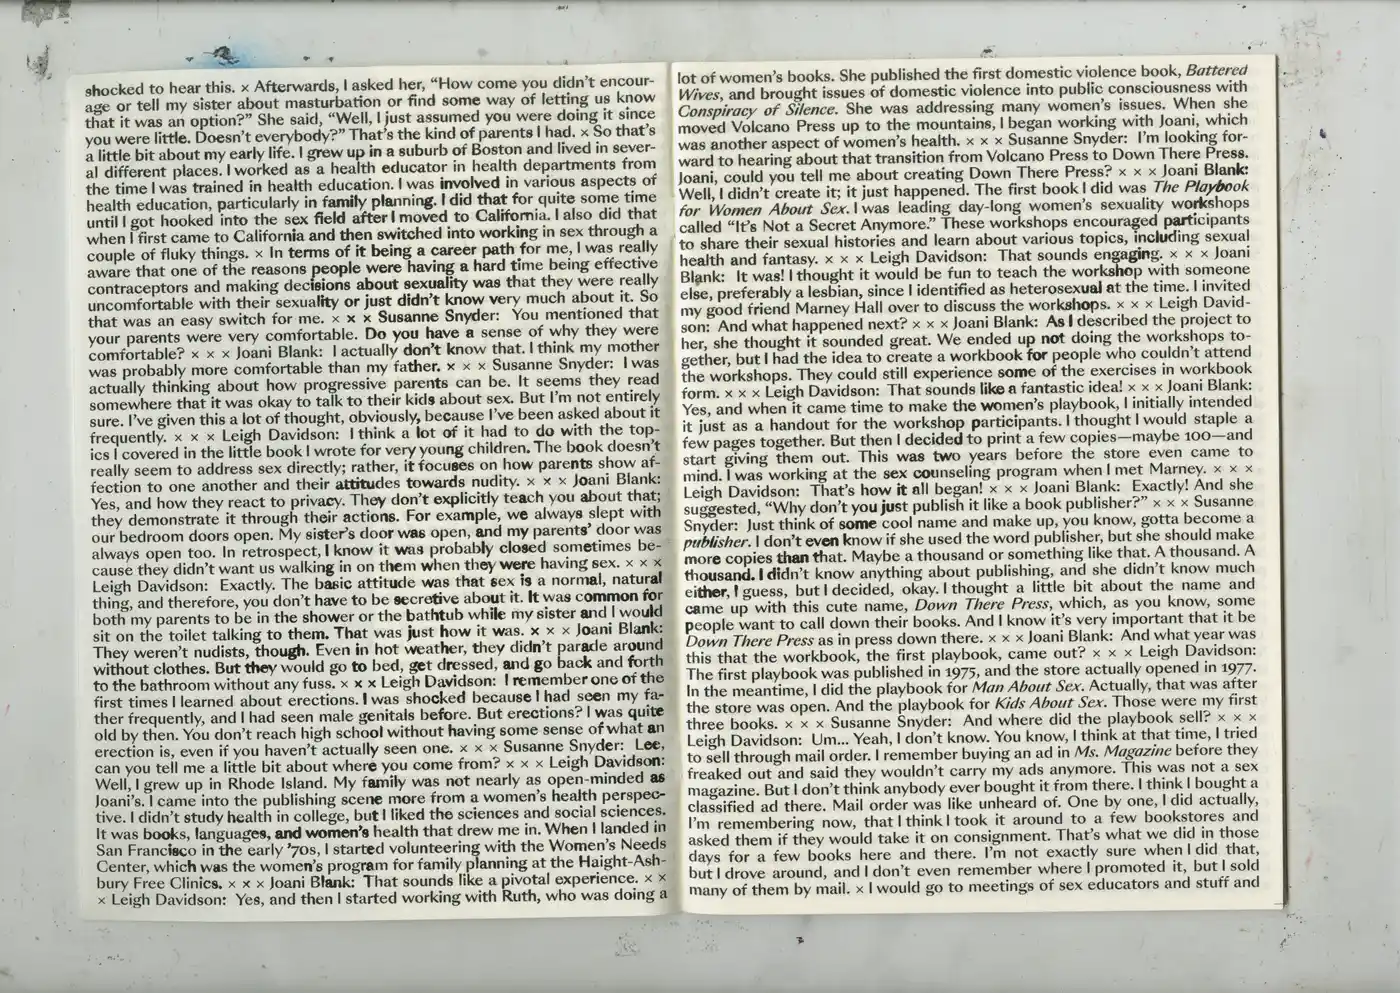 shocked to hear this. × Afterwards, I asked her, “How come you didn’t encour-
age or tell my sister about masturbation or find some way of letting us know
that it was an option?” She said, “Well, I just assumed you were doing it since
you were little. Doesn’t everybody?” That’s the kind of parents I had. × So that’s
a little bit about my early life. I grew up in a suburb of Boston and lived in sever-
al different places. I worked as a health educator in health departments from
the time I was trained in health education. I was involved in various aspects of
health education, particularly in family planning. I did that for quite some time
until I got hooked into the sex field after I moved to California. I also did that
when I first came to California and then switched into working in sex through a
couple of fluky things. × In terms of it being a career path for me, I was really
aware that one of the reasons people were having a hard time being effective
contraceptors and making decisions about sexuality was that they were really
uncomfortable with their sexuality or just didn’t know very much about it. So
that was an easy switch for me. × × × Susanne Snyder: You mentioned that
your parents were very comfortable. Do you have a sense of why they were
comfortable? × × × Joani Blank: I actually don’t know that. I think my mother
was probably more comfortable than my father. × × × Susanne Snyder: I was
actually thinking about how progressive parents can be. It seems they read
somewhere that it was okay to talk to their kids about sex. But I’m not entirely
sure. I’ve given this a lot of thought, obviously, because I’ve been asked about it
frequently. × × × Leigh Davidson: I think a lot of it had to do with the top-
ics I covered in the little book I wrote for very young children. The book doesn’t
really seem to address sex directly; rather, it focuses on how parents show af-
fection to one another and their attitudes towards nudity. × × × Joani Blank:
Yes, and how they react to privacy. They don’t explicitly teach you about that;
they demonstrate it through their actions. For example, we always slept with
our bedroom doors open. My sister’s door was open, and my parents’ door was
always open too. In retrospect, I know it was probably closed sometimes be-
cause they didn’t want us walking in on them when they were having sex. × × ×
Leigh Davidson: Exactly. The basic attitude was that sex is a normal, natural
thing, and therefore, you don’t have to be secretive about it. It was common for
both my parents to be in the shower or the bathtub while my sister and I would
sit on the toilet talking to them. That was just how it was. × × × Joani Blank:
They weren’t nudists, though. Even in hot weather, they didn’t parade around
without clothes. But they would go to bed, get dressed, and go back and forth
to the bathroom without any fuss. × × × Leigh Davidson: I remember one of the
first times I learned about erections. I was shocked because I had seen my fa-
ther frequently, and I had seen male genitals before. But erections? I was quite
old by then. You don’t reach high school without having some sense of what an
erection is, even if you haven’t actually seen one. × × × Susanne Snyder: Lee,
can you tell me a little bit about where you come from? × × × Leigh Davidson:
Well, I grew up in Rhode Island. My family was not nearly as open-minded as
Joani’s. I came into the publishing scene more from a women’s health perspec-
tive. I didn’t study health in college, but I liked the sciences and social sciences.
It was books, languages, and women’s health that drew me in. When I landed in
San Francisco in the early ’70s, I started volunteering with the Women’s Needs
Center, which was the women’s program for family planning at the Haight-Ash-
bury Free Clinics. × × × Joani Blank: That sounds like a pivotal experience. × ×
× Leigh Davidson: Yes, and then I started working with Ruth, who was doing a
lot of women’s books. She published the first domestic violence book, Battered
Wives, and brought issues of domestic violence into public consciousness with
Conspiracy of Silence. She was addressing many women’s issues. When she
moved Volcano Press up to the mountains, I began working with Joani, which
was another aspect of women’s health. × × × Susanne Snyder: I’m looking for-
ward to hearing about that transition from Volcano Press to Down There Press.
Joani, could you tell me about creating Down There Press? × × × Joani Blank:
Well, I didn’t create it; it just happened. The first book I did was The Playbook
for Women About Sex. I was leading day-long women’s sexuality workshops
called “It’s Not a Secret Anymore.” These workshops encouraged participants
to share their sexual histories and learn about various topics, including sexual
health and fantasy. × × × Leigh Davidson: That sounds engaging. × × × Joani
Blank: It was! I thought it would be fun to teach the workshop with someone
else, preferably a lesbian, since I identified as heterosexual at the time. I invited
my good friend Marney Hall over to discuss the workshops. × × × Leigh David-
son: And what happened next? × × × Joani Blank: As I described the project to
her, she thought it sounded great. We ended up not doing the workshops to-
gether, but I had the idea to create a workbook for people who couldn’t attend
the workshops. They could still experience some of the exercises in workbook
form. × × × Leigh Davidson: That sounds like a fantastic idea! × × × Joani Blank:
Yes, and when it came time to make the women’s playbook, I initially intended
it just as a handout for the workshop participants. I thought I would staple a
few pages together. But then I decided to print a few copies—maybe 100—and
start giving them out. This was two years before the store even came to
mind. I was working at the sex counseling program when I met Marney. × × ×
Leigh Davidson: That’s how it all began! × × × Joani Blank: Exactly! And she
suggested, “Why don’t you just publish it like a book publisher?” × × × Susanne
Snyder: Just think of some cool name and make up, you know, gotta become a
publisher. I don’t even know if she used the word publisher, but she should make
more copies than that. Maybe a thousand or something like that. A thousand. A
thousand. I didn’t know anything about publishing, and she didn’t know much
either, I guess, but I decided, okay. I thought a little bit about the name and
came up with this cute name, Down There Press, which, as you know, some
people want to call down their books. And I know it’s very important that it be
Down There Press as in press down there. × × × Joani Blank: And what year was
this that the workbook, the first playbook, came out? × × × Leigh Davidson:
The first playbook was published in 1975, and the store actually opened in 1977.
In the meantime, I did the playbook for Man About Sex. Actually, that was after
the store was open. And the playbook for Kids About Sex. Those were my first
three books. × × × Susanne Snyder: And where did the playbook sell? × × ×
Leigh Davidson: Um... Yeah, I don’t know. You know, I think at that time, I tried
to sell through mail order. I remember buying an ad in Ms. Magazine before they
freaked out and said they wouldn’t carry my ads anymore. This was not a sex
magazine. But I don’t think anybody ever bought it from there. I think I bought a
classified ad there. Mail order was like unheard of. One by one, I did actually,
I’m remembering now, that I think I took it around to a few bookstores and
asked them if they would take it on consignment. That’s what we did in those
days for a few books here and there. I’m not exactly sure when I did that,
but I drove around, and I don’t even remember where I promoted it, but I sold
many of them by mail. × I would go to meetings of sex educators and stuff and